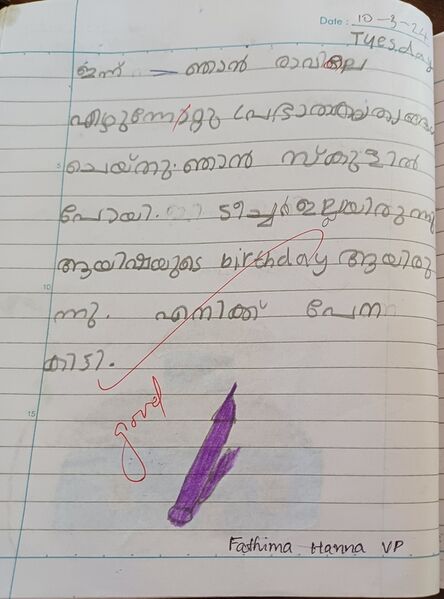 Date: 10-3-24
Tuesday
ഇന്ന് ഞാൻ രാവിലെ
എഴുന്നേറ്റു പ്രഭാതകൃത്യങ്ങൾ
ചെയ്തു. ഞാൻ സ്കൂളിൽ
പോയി. ടീച്ചർ ഇല്ലായിരുന്നു
ആയിഷയുടെ birthday ആയിരു
ന്നു. എനിക്ക് പേന
കിട്ടി.
good
Fathima Hanna VP